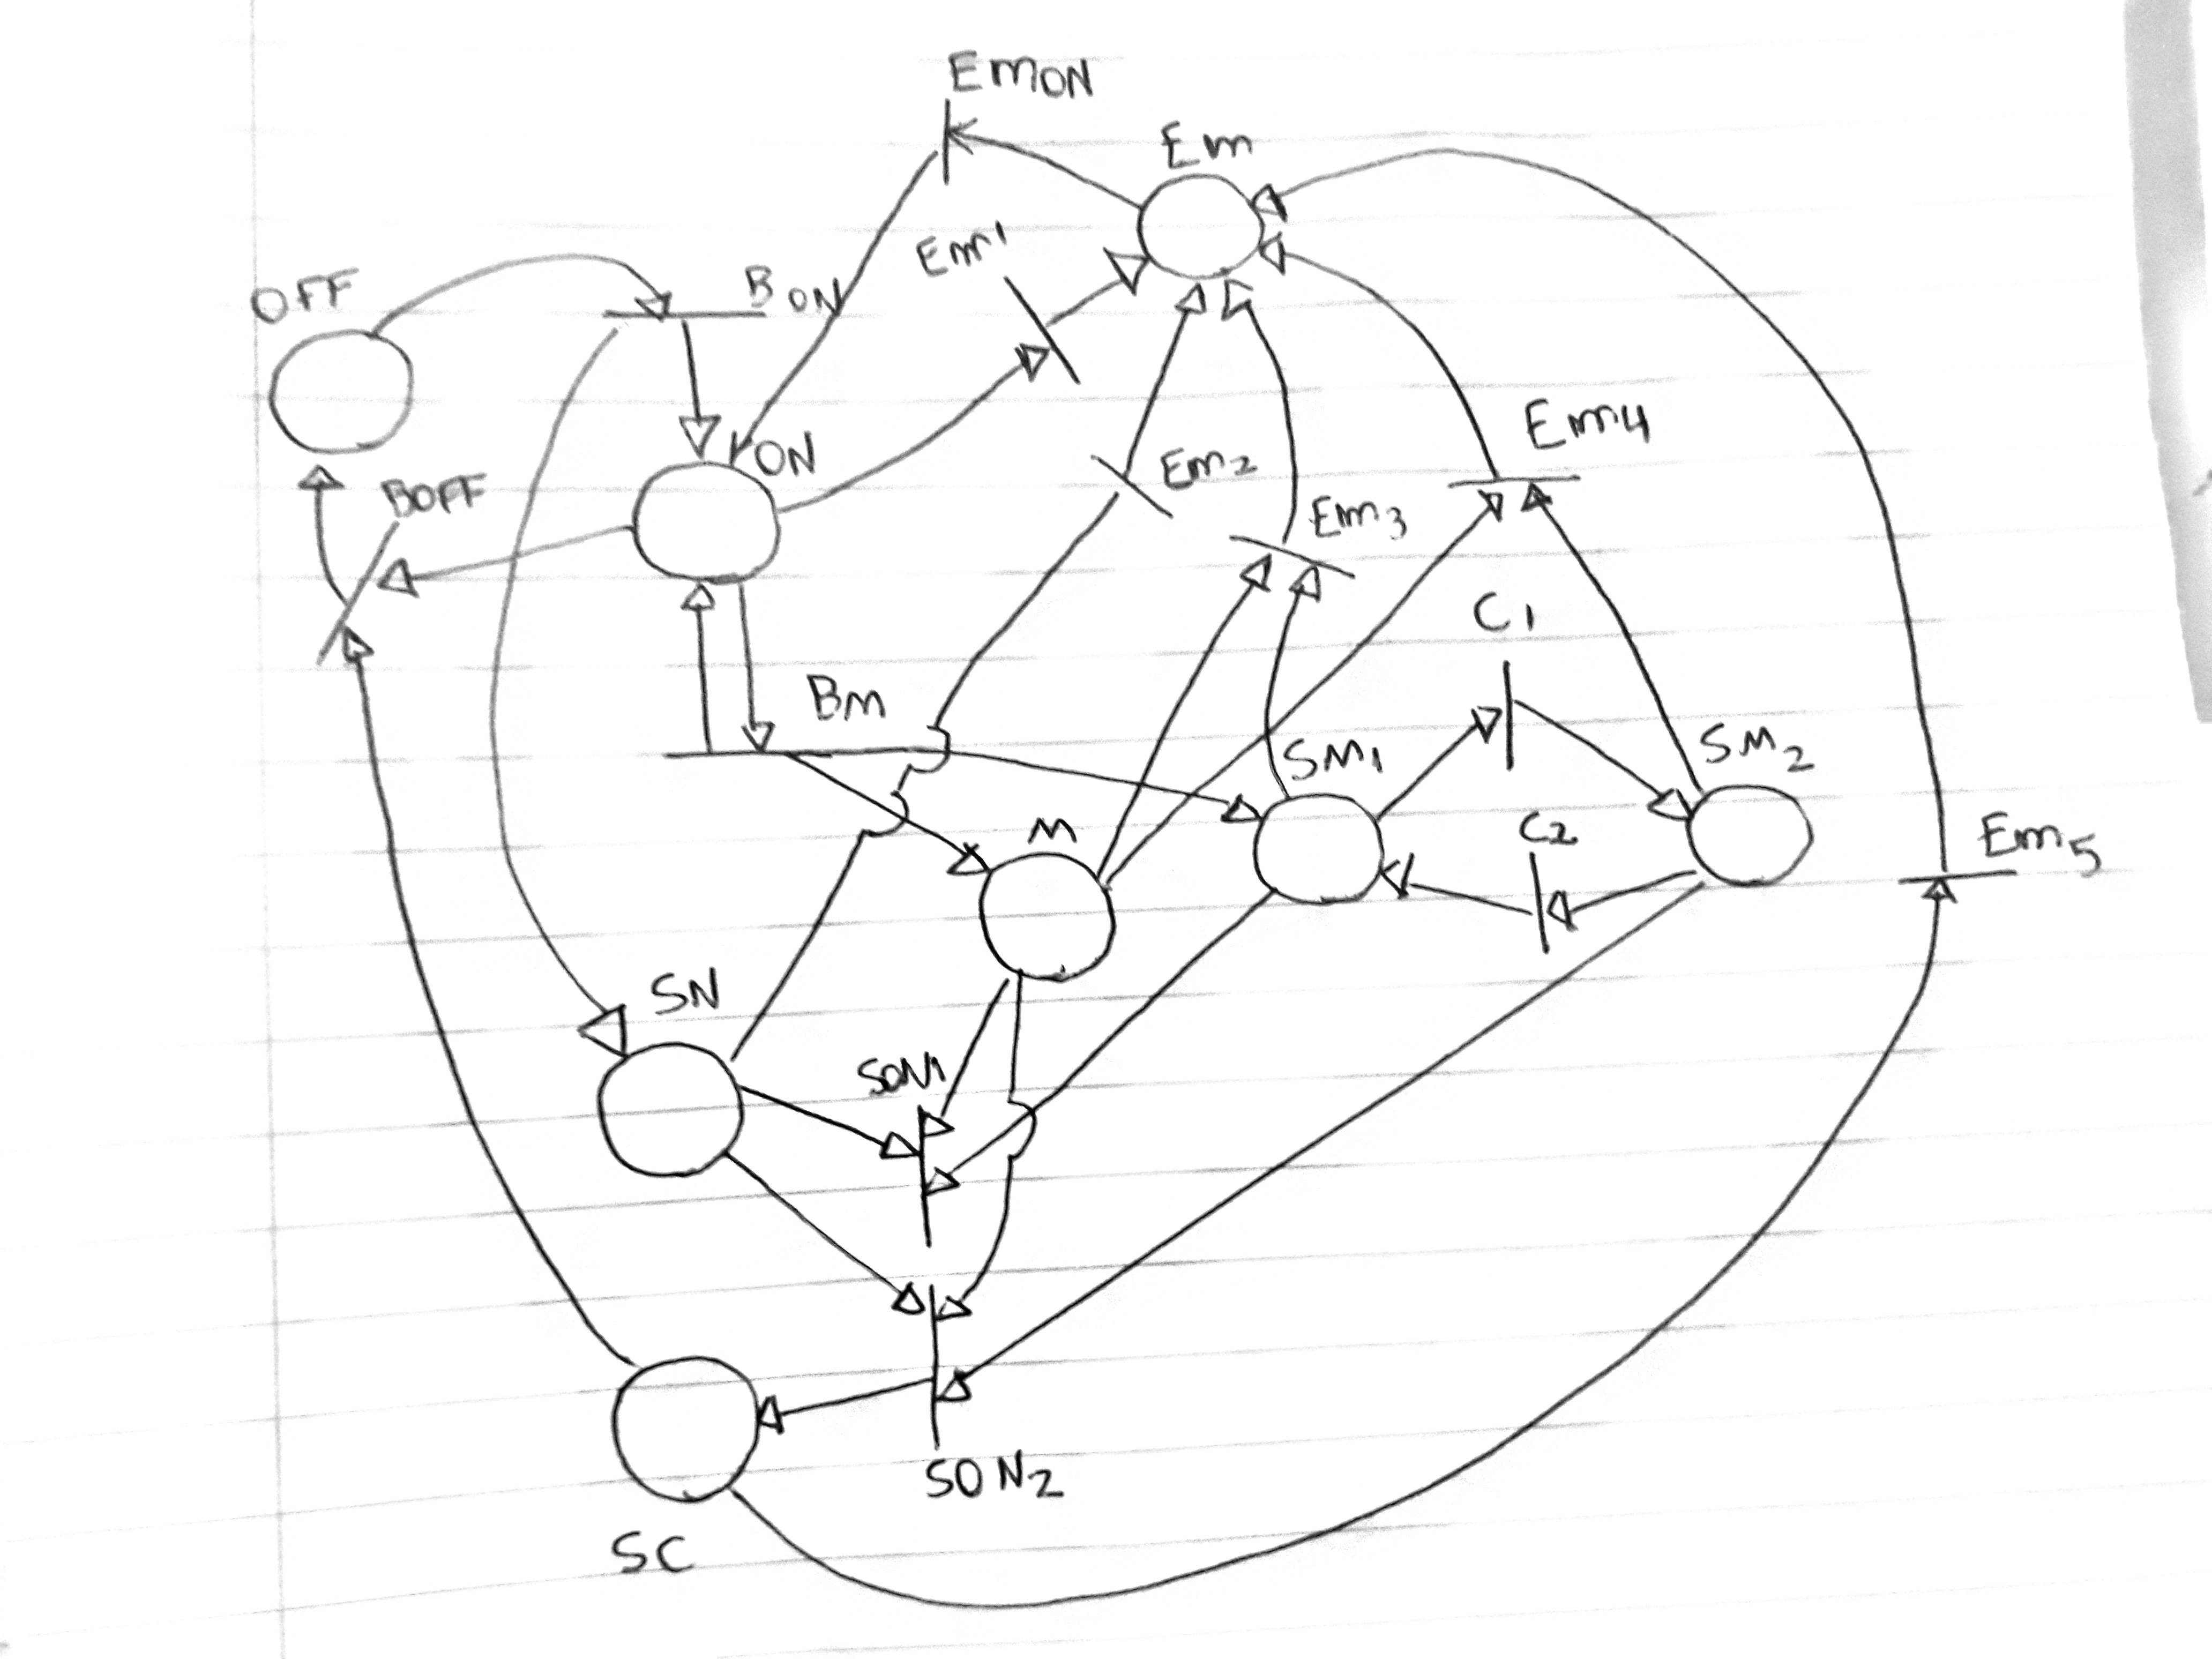 EmON
Em
Em1
OFF
BON
ON
BOFF
Em2
Em3
Em4
C1
Bm
SM1
SM2
C2
M
Em5
SN
SON1
SON2
SC